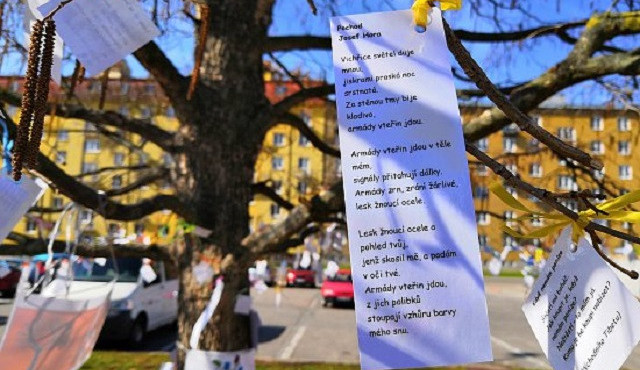 Pochod
Josef Hora
Vichřice světel duje
mnou,
jiskrami praská noc
srstnatá.
Za stěnou tmy bije
kladivo,
armády vteřin jdou.
Armády vteřin jdou v těle
mém,
signály přitahují dálky.
Armády zrn, zrání žárlivé,
lesk žnoucí ocele.
Lesk žnoucí ocele a
pohled tvůj,
jenž skolil mě, a padám
v oči tvé.
Armády vteřin jdou,
z jich polibků
stoupají vzhůru barvy
mého snu.